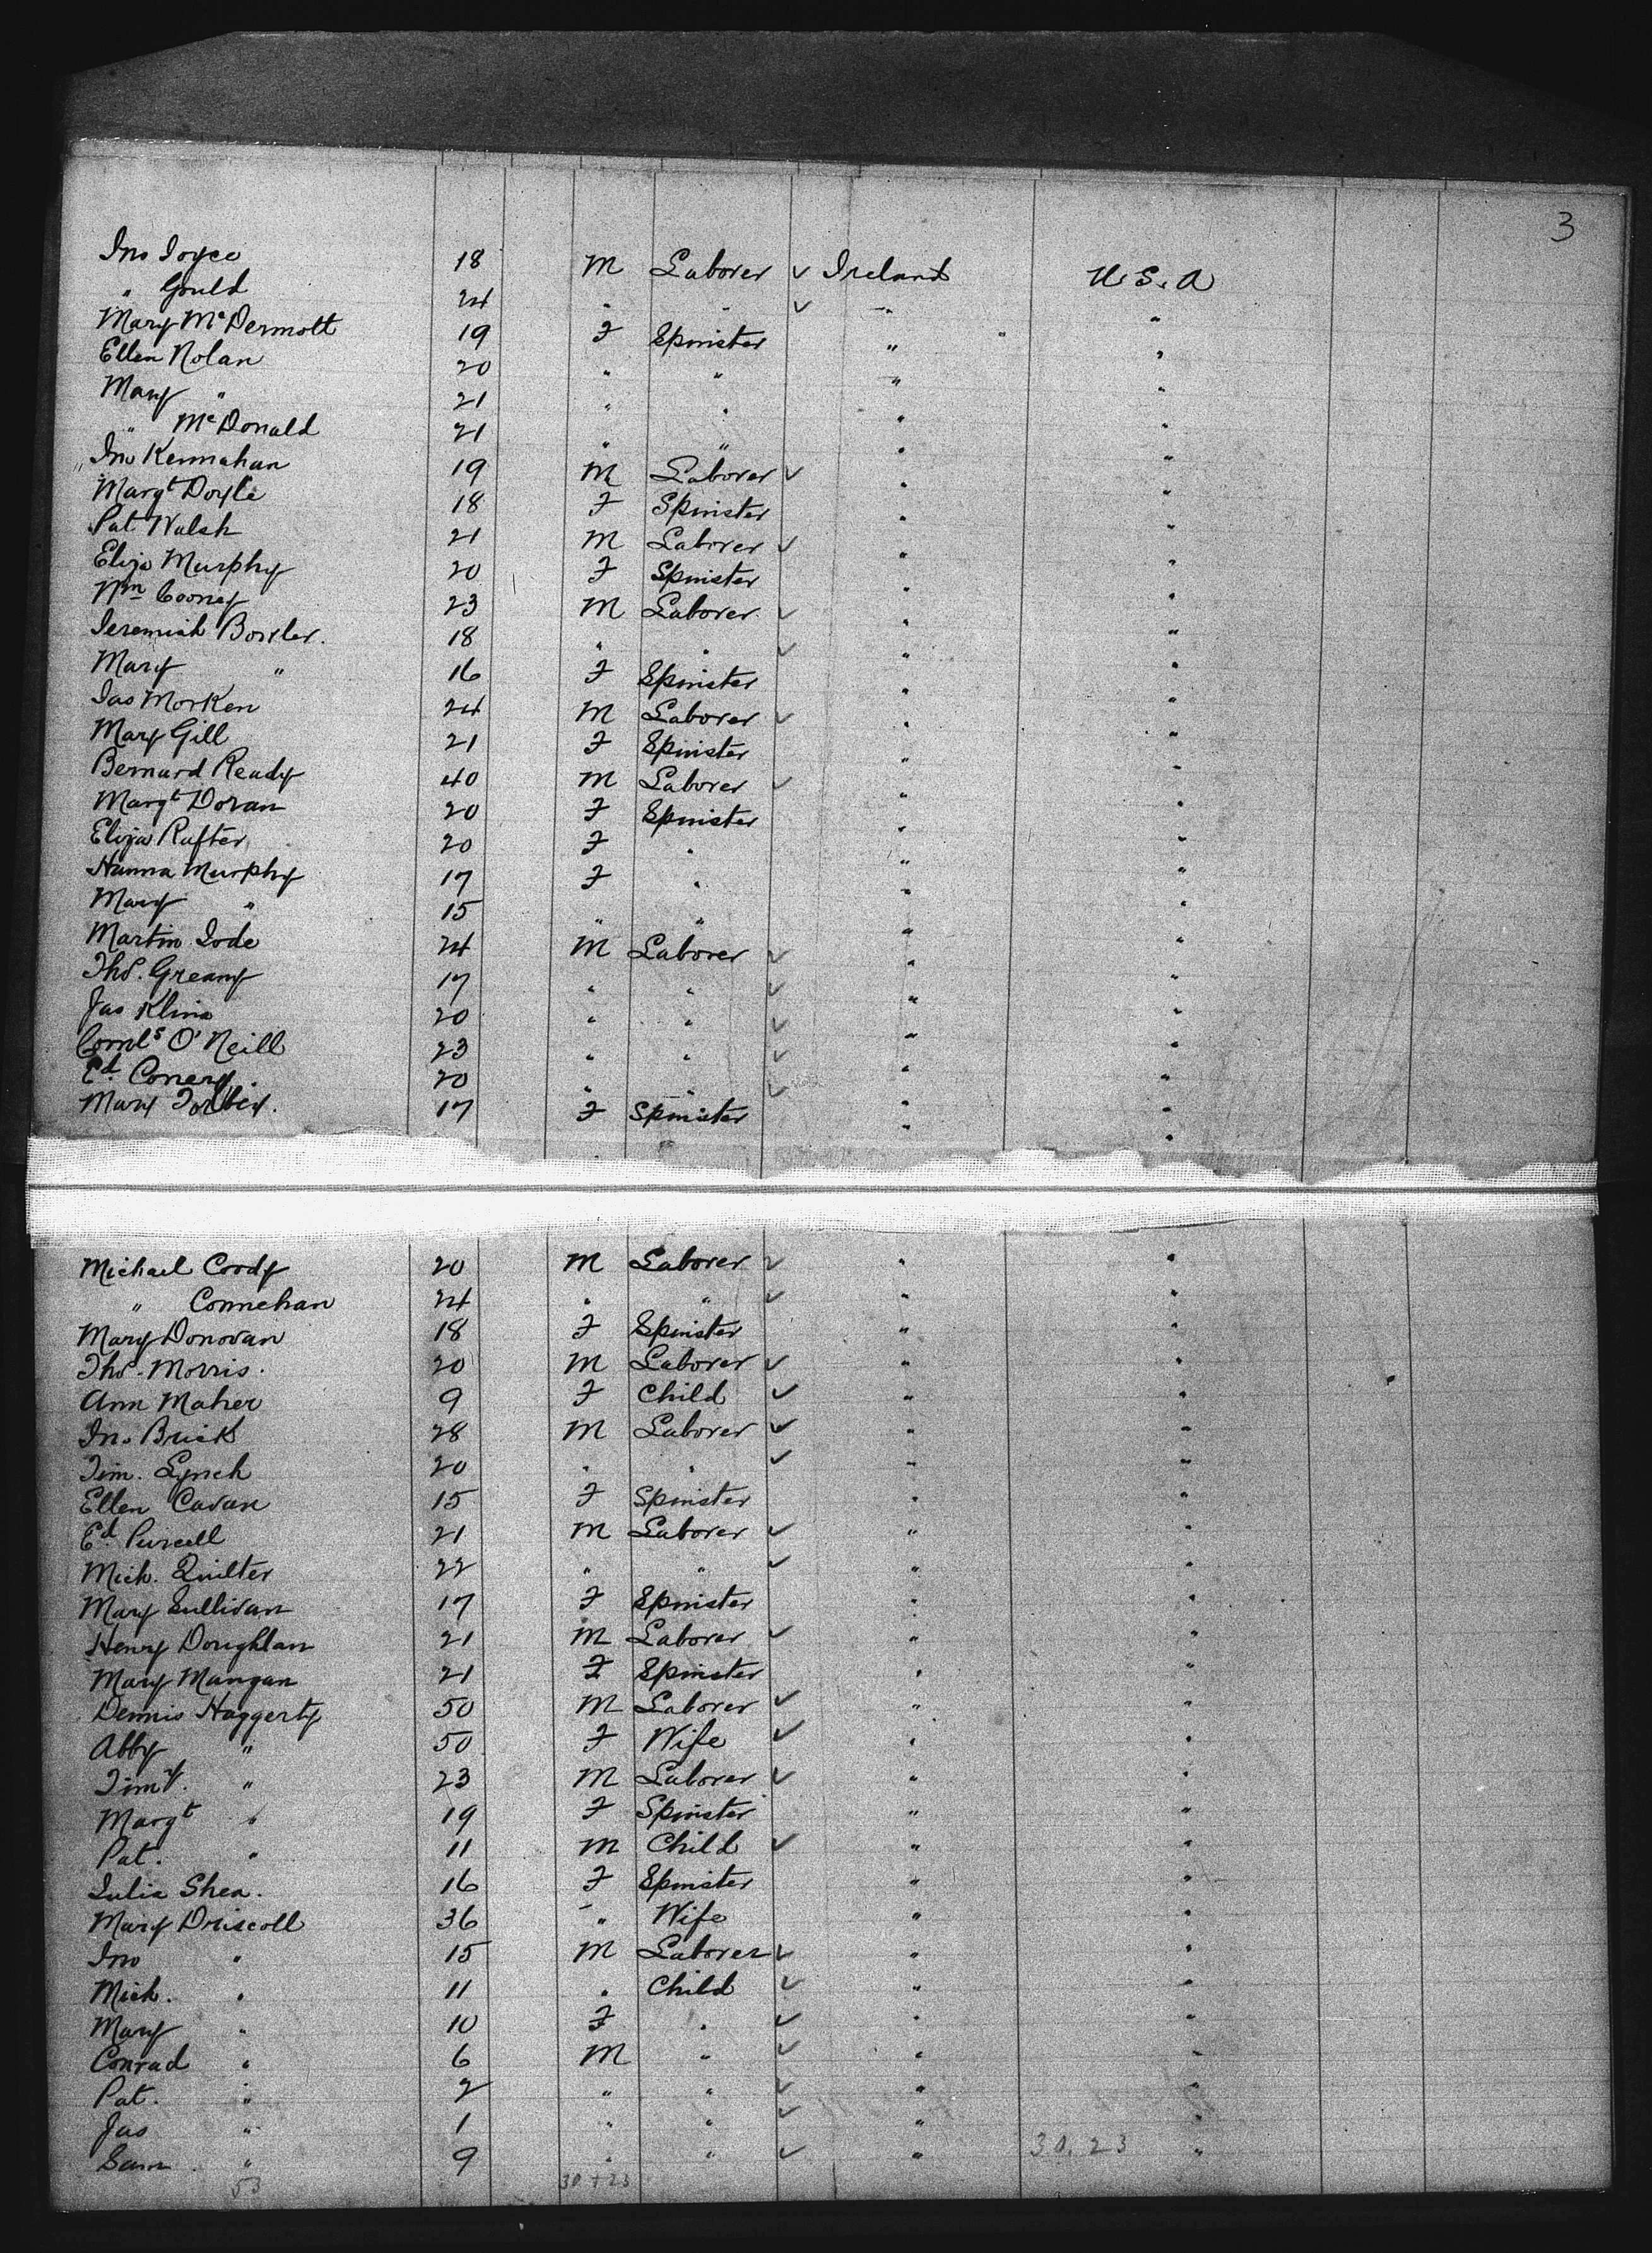 3
Jno Joyce 18 M Laborer ✓ Ireland U.S.A
" Gould 24 " " ✓ " "
Mary McDermott 19 F Spinster " "
Ellen Nolan 20 " " " "
Mary " 21 " " " "
" McDonald 21 " " " "
Jno Kennahan 19 M Laborer ✓ " "
Margt Doyle 18 F Spinster " "
Pat Walsh 21 M Laborer ✓ " "
Eliza Murphy 20 F Spinster " "
Wm Cooney 23 M Laborer ✓ " "
Jeremiah Bowler. 18 " " ✓ " "
Mary " 16 F Spinster " "
Jas Morken 24 M Laborer ✓ " "
Mary Gill 21 F Spinster " "
Bernard Ready 40 M Laborer ✓ " "
Margt Doran 20 F Spinster " "
Eliza Rafter 20 F " " "
Hanna Murphy 17 F " " "
Mary " 15 " " " "
Martin Jode 24 M Laborer ✓ " "
Thos. Greany 17 " " ✓ " "
Jas 20 " " ✓ " "
Cornls O'Neill 23 " " ✓ " "
Ed. Conery 20 " " ✓ " "
Mary 17 F Spinster " "
Michael Coody 20 M Laborer ✓ " "
" Connehan 24 " " ✓ " "
Mary Donovan 18 F Spinster " "
Thos. Morris. 20 M Laborer ✓ " "
Ann Maher 9 F Child ✓ " "
Jno. Brick 28 M Laborer ✓ " "
Tim. Lynch 20 " " ✓ " "
Ellen Cavan 15 F Spinster " "
Ed. Purcell 21 M Laborer ✓ " "
Mich. Quilter 22 " " ✓ " "
Mary Sullivan 17 F Spinster " "
Henry Doughlan 21 M Laborer ✓ " "
Mary Mangan 21 F Spinster " "
Dennis Haggerty 50 M Laborer ✓ " "
Abby " 50 F Wife ✓ " "
Timy. " 23 M Laborer ✓ " "
Margt " 19 F Spinster " "
Pat. " 11 M Child ✓ " "
Julia Shea. 16 F Spinster " "
Mary Driscoll 36 " Wife " "
Jno " 15 M Laborer ✓ " "
Mich. " 11 " Child ✓ " "
Mary " 10 F " ✓ " "
Conrad " 6 M " ✓ " "
Pat. " 2 " " ✓ " "
Jas " 1 " " ✓ " "
Sam " 9 " " ✓ " 30.23 "
53 30+23